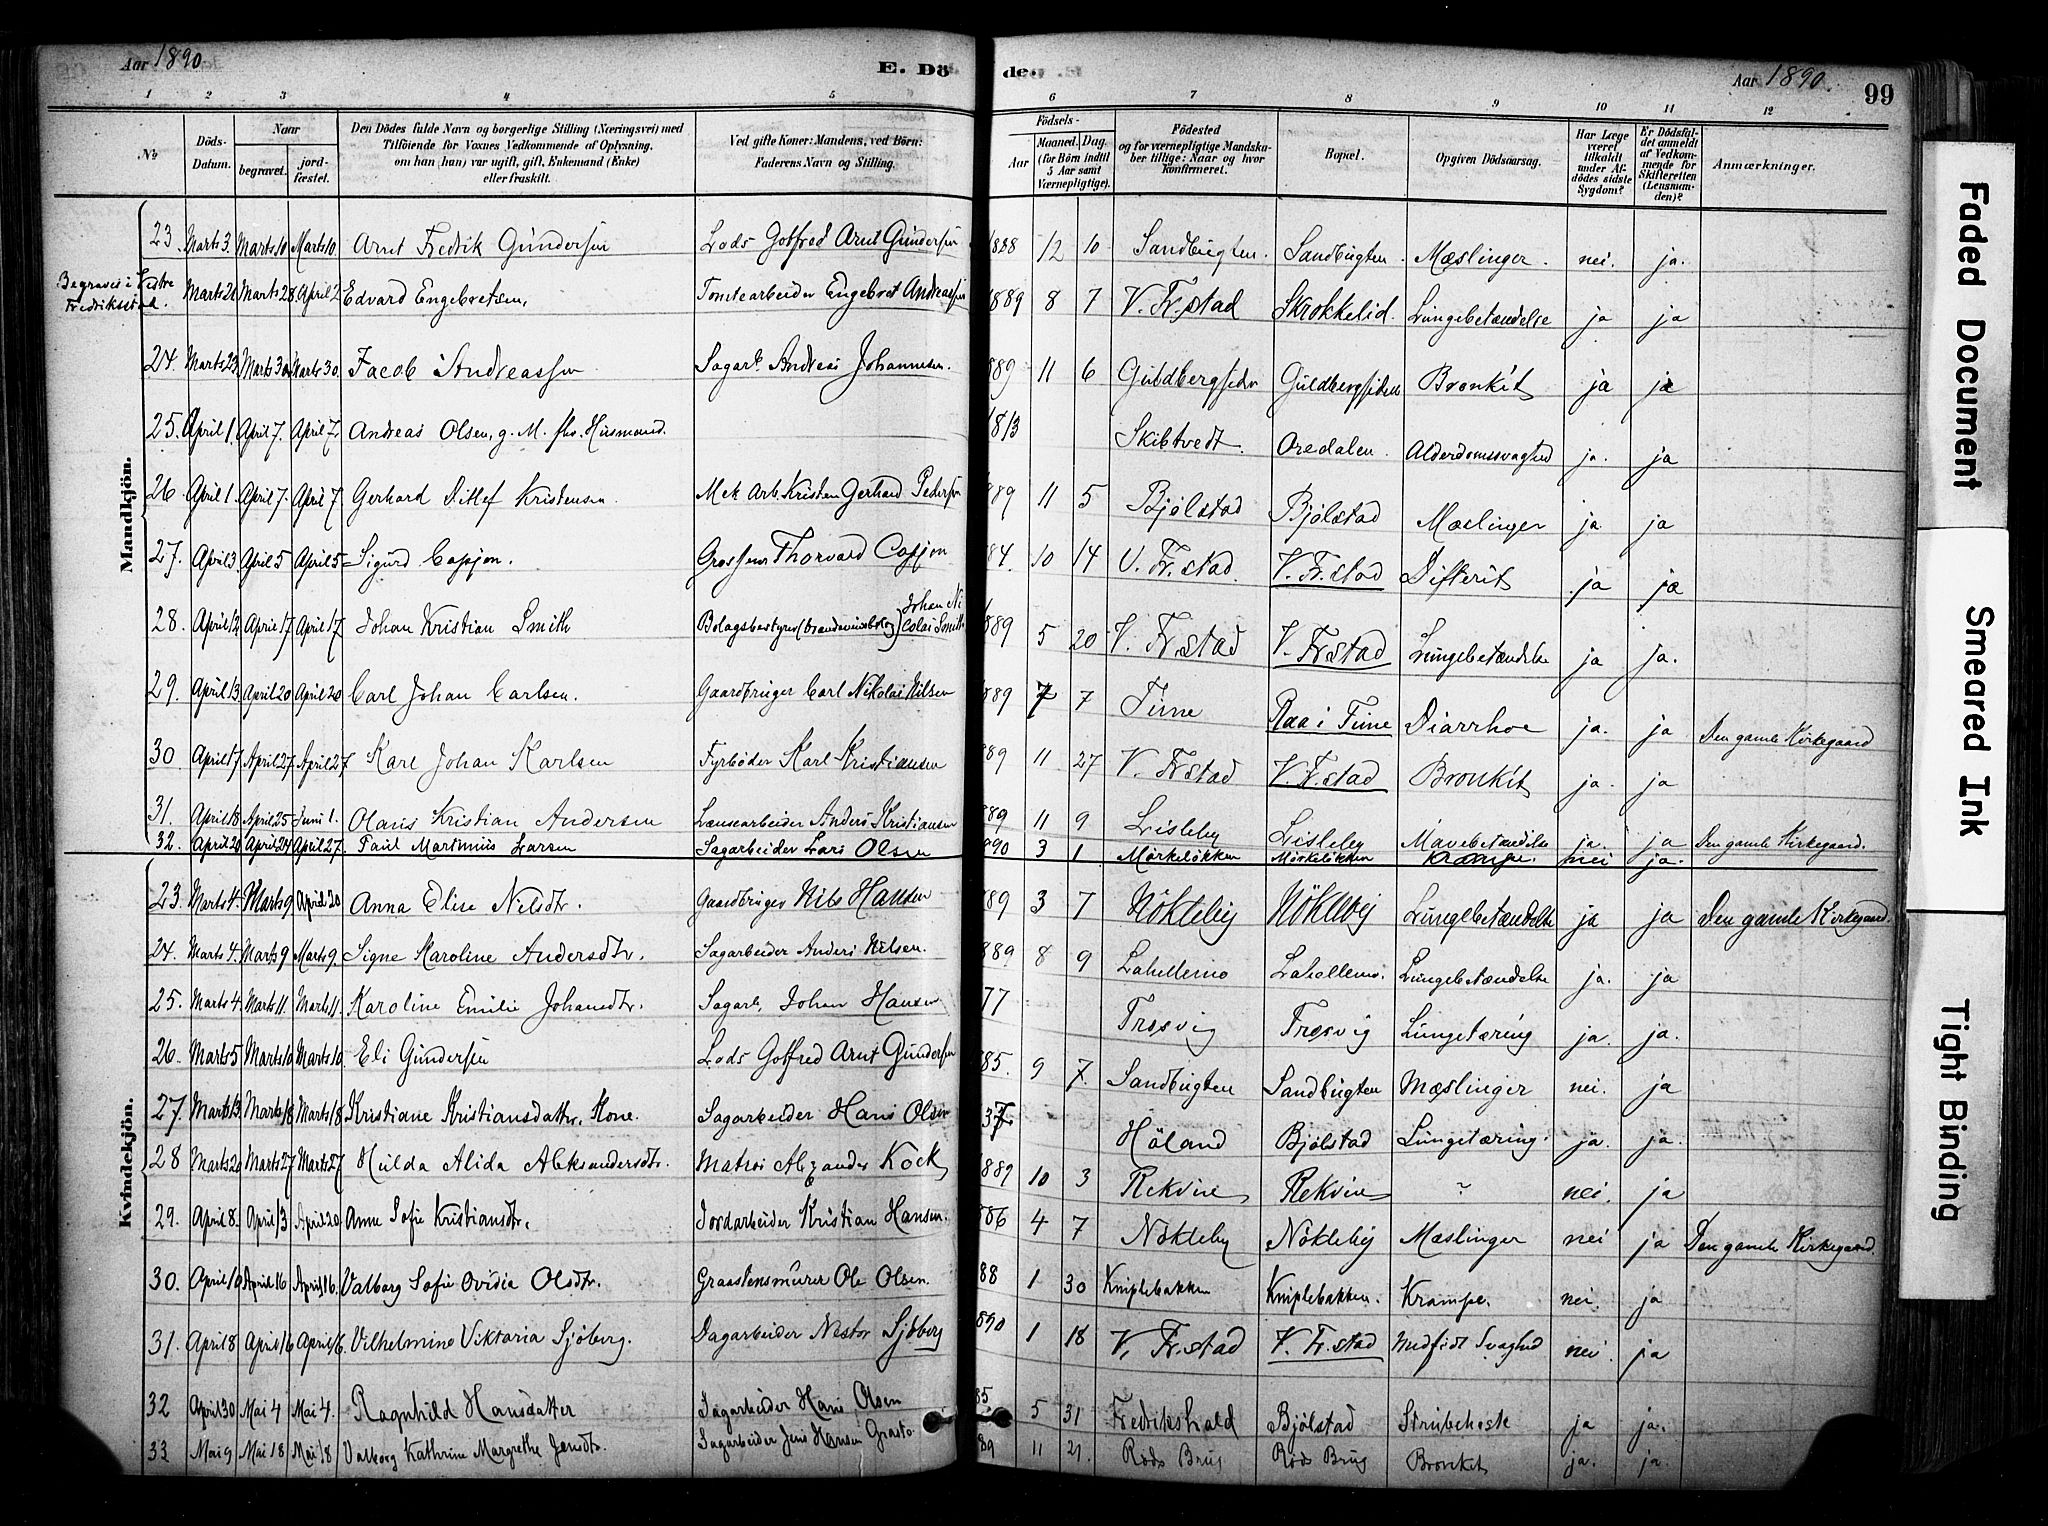 Aar 1890. E. Döde. Aar 1890. 99
1 2 3 4 5 6 7 8 9 10 11 12
No Döds-Datum. Naar begravet. jordfæstet. Den Dödes fulde Navn og borgerlige Stilling (Næringsvei) med Tilföiende for Voxnes Vedkommende af Oplysning, om han (hun) var ugift, gift, Enkemand (Enke) eller fraskilt. Ved gifte Koner: Mandens, ved Börn: Faderens Navn og Stilling. Födsels- Aar Maaned. Dag. (for Börn indtil 5 Aar samt Værnepligtige). Födested og for værnepligtige Mandskaber tillige: Naar og hvor konfirmeret. Bopæl. Opgiven Dödsaarsag. Har Læge været tilkaldt under Afdödes sidste Sygdom? Er Dödsfaldet anmeldt af Vedkommende for Skifteretten (Lensmanden)? Anmærkninger.
Mandkjön.
23. Marts 3. Marts 10 Marts 10. Arnt Fredrik Gundersen Lods Gotfred Arnt Gundersen 1888 12 10 Sandbugten. Sandbugten. Mæslinger. nei. ja.
Begraves i Vestre Fredriksstad. Marts 21 Marts 28 April 2 Edvard Engebretsen, Tomtearbeider Engebret Andreassen 1889 8 7 V. Fr.stad Skrokkelid. Lungebetændelse ja ja
24. Marts 23 Marts 30 Marts 30. Jacob Andreassen Sagarb. Andreas Johannesen. 889 11 6 Guldbergsiden Guldbergsiden Bronkit ja ja
25. April 1. April 7. April 7. Andreas Olsen, g. M. fhv. Husmand. 1813 Skibtvedt. Oredalen. Alderdomssvaghed ja. ja
26. April 1. April 7. April 7 Gerhard Ditlef Kristensen. Mek Arb. Kristen Gerhard Pedersen 889 11 5 Bjölstad Bjölstad Mæslinger ja ja
27. April 3 April 5 April 5 Sigurd Capjon. Grosserer Thorvard Capjon 84. 10 14 V. Fr.stad. V. Fr.stad Difterit ja ja
28. April 12 April 17 April 17 Johan Kristian Smith Bolagsbestyrer (brændevinsbolag) Johan Nicolai Smith 889 5 20 V. Fr.stad V. Frstad Lungebetændelse ja ja.
29. April 13 April 20 April 20 Carl Johan Carlsen. Gaardbruger Carl Nikolai Nilsen 889 7 7 Tune Raa i Tune Diarrhoe ja. ja Den gamle Kirkegaard
30 April 17 April 27 April 27 Karl Johan Karlsen Fyrbøder Karl Kristiansen 889 11 27 V. Frstad V. Fr.stad Bronkit ja. ja
31. April 18 April 25 Juni 1. Olaus Kristian Andersen Lænsearbeider Anders Kristiansen 889 11 9 Lisleby Lisleby Mavebetændelse ja. ja Den gamle Kirkegaard.
32. April 20 April 24 April 27. Paul Martinius Larsen Sagarbeider Lars Olsen 890 3 1 Mörkeløkken Mörkeløkken Krampe. nei ja.
Kvindekjön.
23. Marts 4. Marts 9 April 20 Anna Elise Nilsdtr. Gaardbruger Nils Hansen 889 3 7 Nökleby Nökleby Lungebetændelse ja ja Den gamle Kirkegaard.
24. Marts 4. Marts 9 Marts 9. Signe Karoline Andersdtr. Sagarbeider Anders Nilsen. 889 8 9 Lahellemo Lahellemo. Lungebetændelse ja. ja
25. Marts 4. Marts 11. Marts 11. Karoline Emilie Johansdtr. Sagarb. Johan Hansen 77 Trosvig Trosvig Lungetæring ja. ja.
26. Marts 5 Marts 10 Marts 10. Eli Gundersen Lods Gotfred Arnt Gundersen 85. 9 7. Sandbugten Sandbugten Mæslinger nei. ja
27. Marts 13 Marts 18 Marts 18 Kristiane Kristiansdatter, Kone. Sagarbeider Hans Olsen 37 Höland Bjölstad Lungetæring. ja. ja.
28 Marts 20 Marts 27 Marts 27 Hulda Alida Aleksandersdtr. Matros Alexander Kock 1889 10 3 Rekvin Rekvin ? nei. ja
29. April 8. April 13 April 20 Anne Sofie Kristiansdtr. Jordarbeider Kristian Hansen. 886 4 7 Nökleby Nökleby Mæslinger nei ja Den gamle Kirkegaard.
30. April 10 April 16 April 16. Valborg Sofie Ovidia Olsdtr. Graastensmurer Ole Olsen. 88 1 30 Kniplebakken Kniplebakken. Krampe. nei. ja
31. April 8 April 16 April 16. Vilhelmine Viktoria Sjöberg. Dagarbeider Nestor Sjöberg 890 1 18 V. Fr.stad V. Fr.stad Medfödt Svaghed nei. ja
32 April 30 Mai 4 Mai 4. Ragnhild Hansdatter Sagarbeider Hans Olsen 85. 5 31 Fredrikshald Bjölstad Strubehoste ja ja.
33 Mai 9 Mai 18 Mai 18 Valborg Kathrine Margrethe Jensdtr. Sagarbeider Jens Hansen 89 11 21. Röds Brug Röds Brug Bronkit ja. ja.
Faded Document
Smeared Ink
Tight Binding